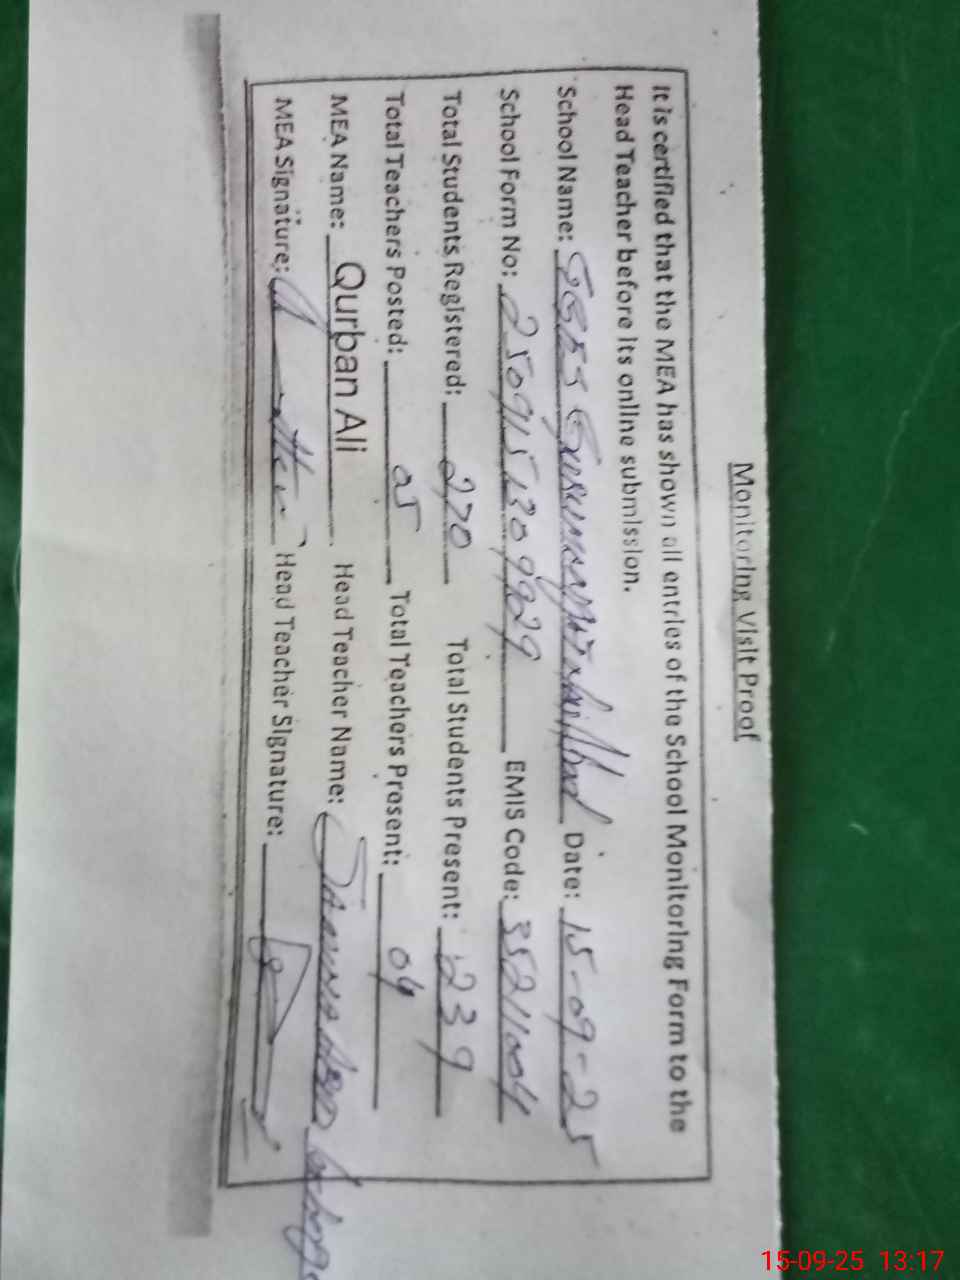 Monitoring Visit Proof
It is certified that the MEA has shown all entries of the School Monitoring Form to the
Head Teacher before its online submission.
School Name: Date: 15-09-25
School Form No: 2509151309929 EMIS Code: 35211004
Total Students Registered: 270 Total Students Present: 239
Total Teachers Posted: 05 Total Teachers Present: 04
MEA Name: Qurban Ali Head Teacher Name:
MEA Signature: Head Teacher Signature:
15-09-25 13:17